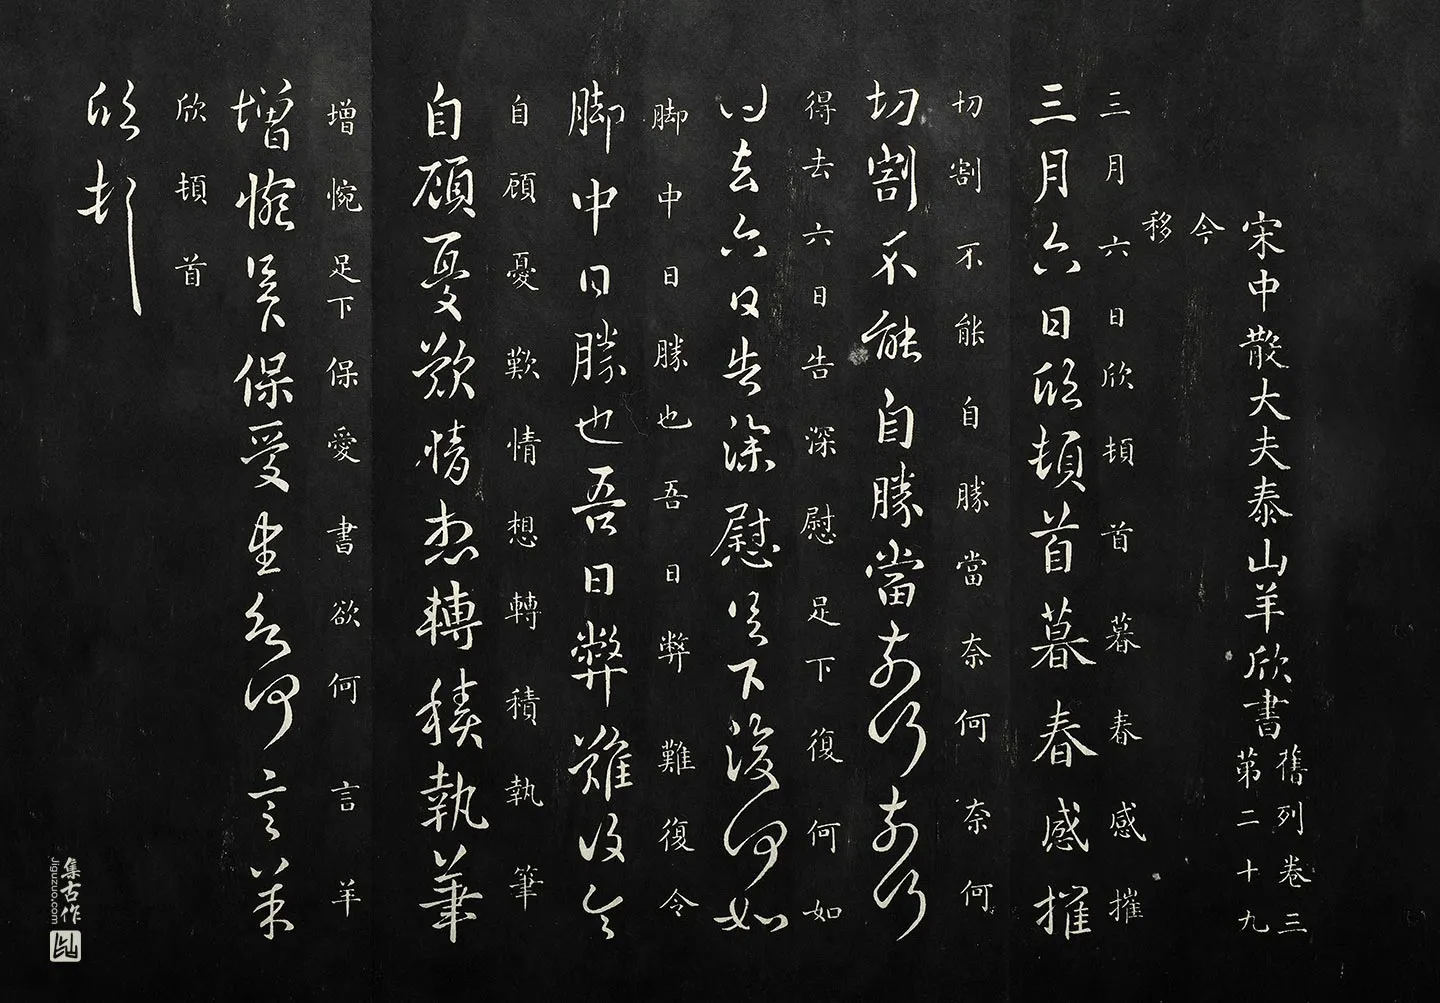 宋中散大夫泰山羊欣書
舊列卷三
第二十九
今
移
三月六日欣頓首暮春感摧
三月六日欣頓首暮春感摧
切割不能自勝當奈何奈何
切割不能自勝當奈何奈何
得去六日告深慰足下復何如
得去六日告深慰足下復何如
脚中日勝也吾日弊難復令
脚中日勝也吾日弊難復令
自顧憂歎情想轉積執筆
自顧憂歎情想轉積執筆
增惋足下保愛書欲何言羊
增惋足下保愛書欲何言羊
欣頓首
欣頓首
集古作
Jiguzuo.com